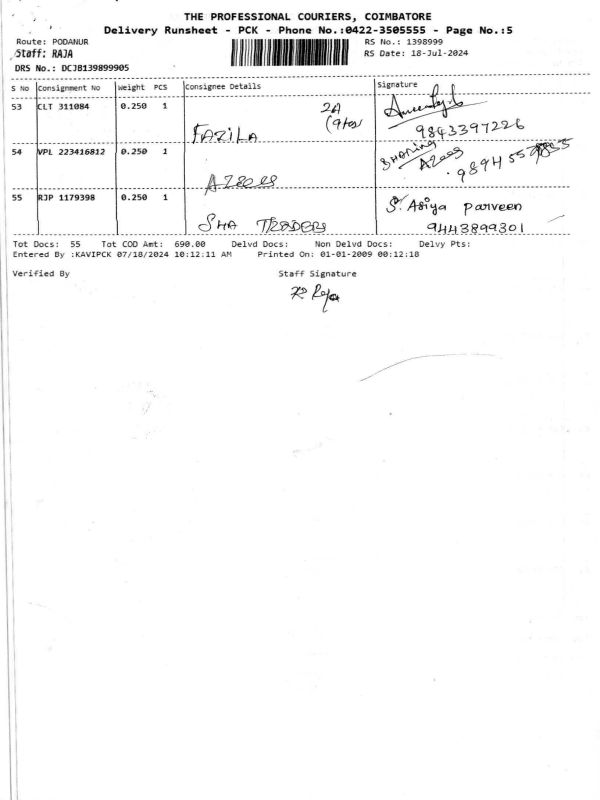 THE PROFESSIONAL COURIERS, COIMBATORE
Delivery Runsheet - PCK - Phone No.:0422-3505555 - Page No.:5
Route: PODANUR RS No.: 1398999
Staff: RAJA RS Date: 18-Jul-2024
DRS No.: DCJB139899905
S No Consignment No Weight PCS Consignee Details Signature
53 CLT 311084 0.250 1 2A
FAZILA 9843397226
54 VPL 223416812 0.250 1
55 RJP 1179398 0.250 1 S. Asiya parveen
SHA TRADERS 9443899301
Tot Docs: 55 Tot COD Amt: 690.00 Delvd Docs: Non Delvd Docs: Delvy Pts:
Entered By :KAVIPCK 07/18/2024 10:12:11 AM Printed On: 01-01-2009 00:12:18
Verified By Staff Signature